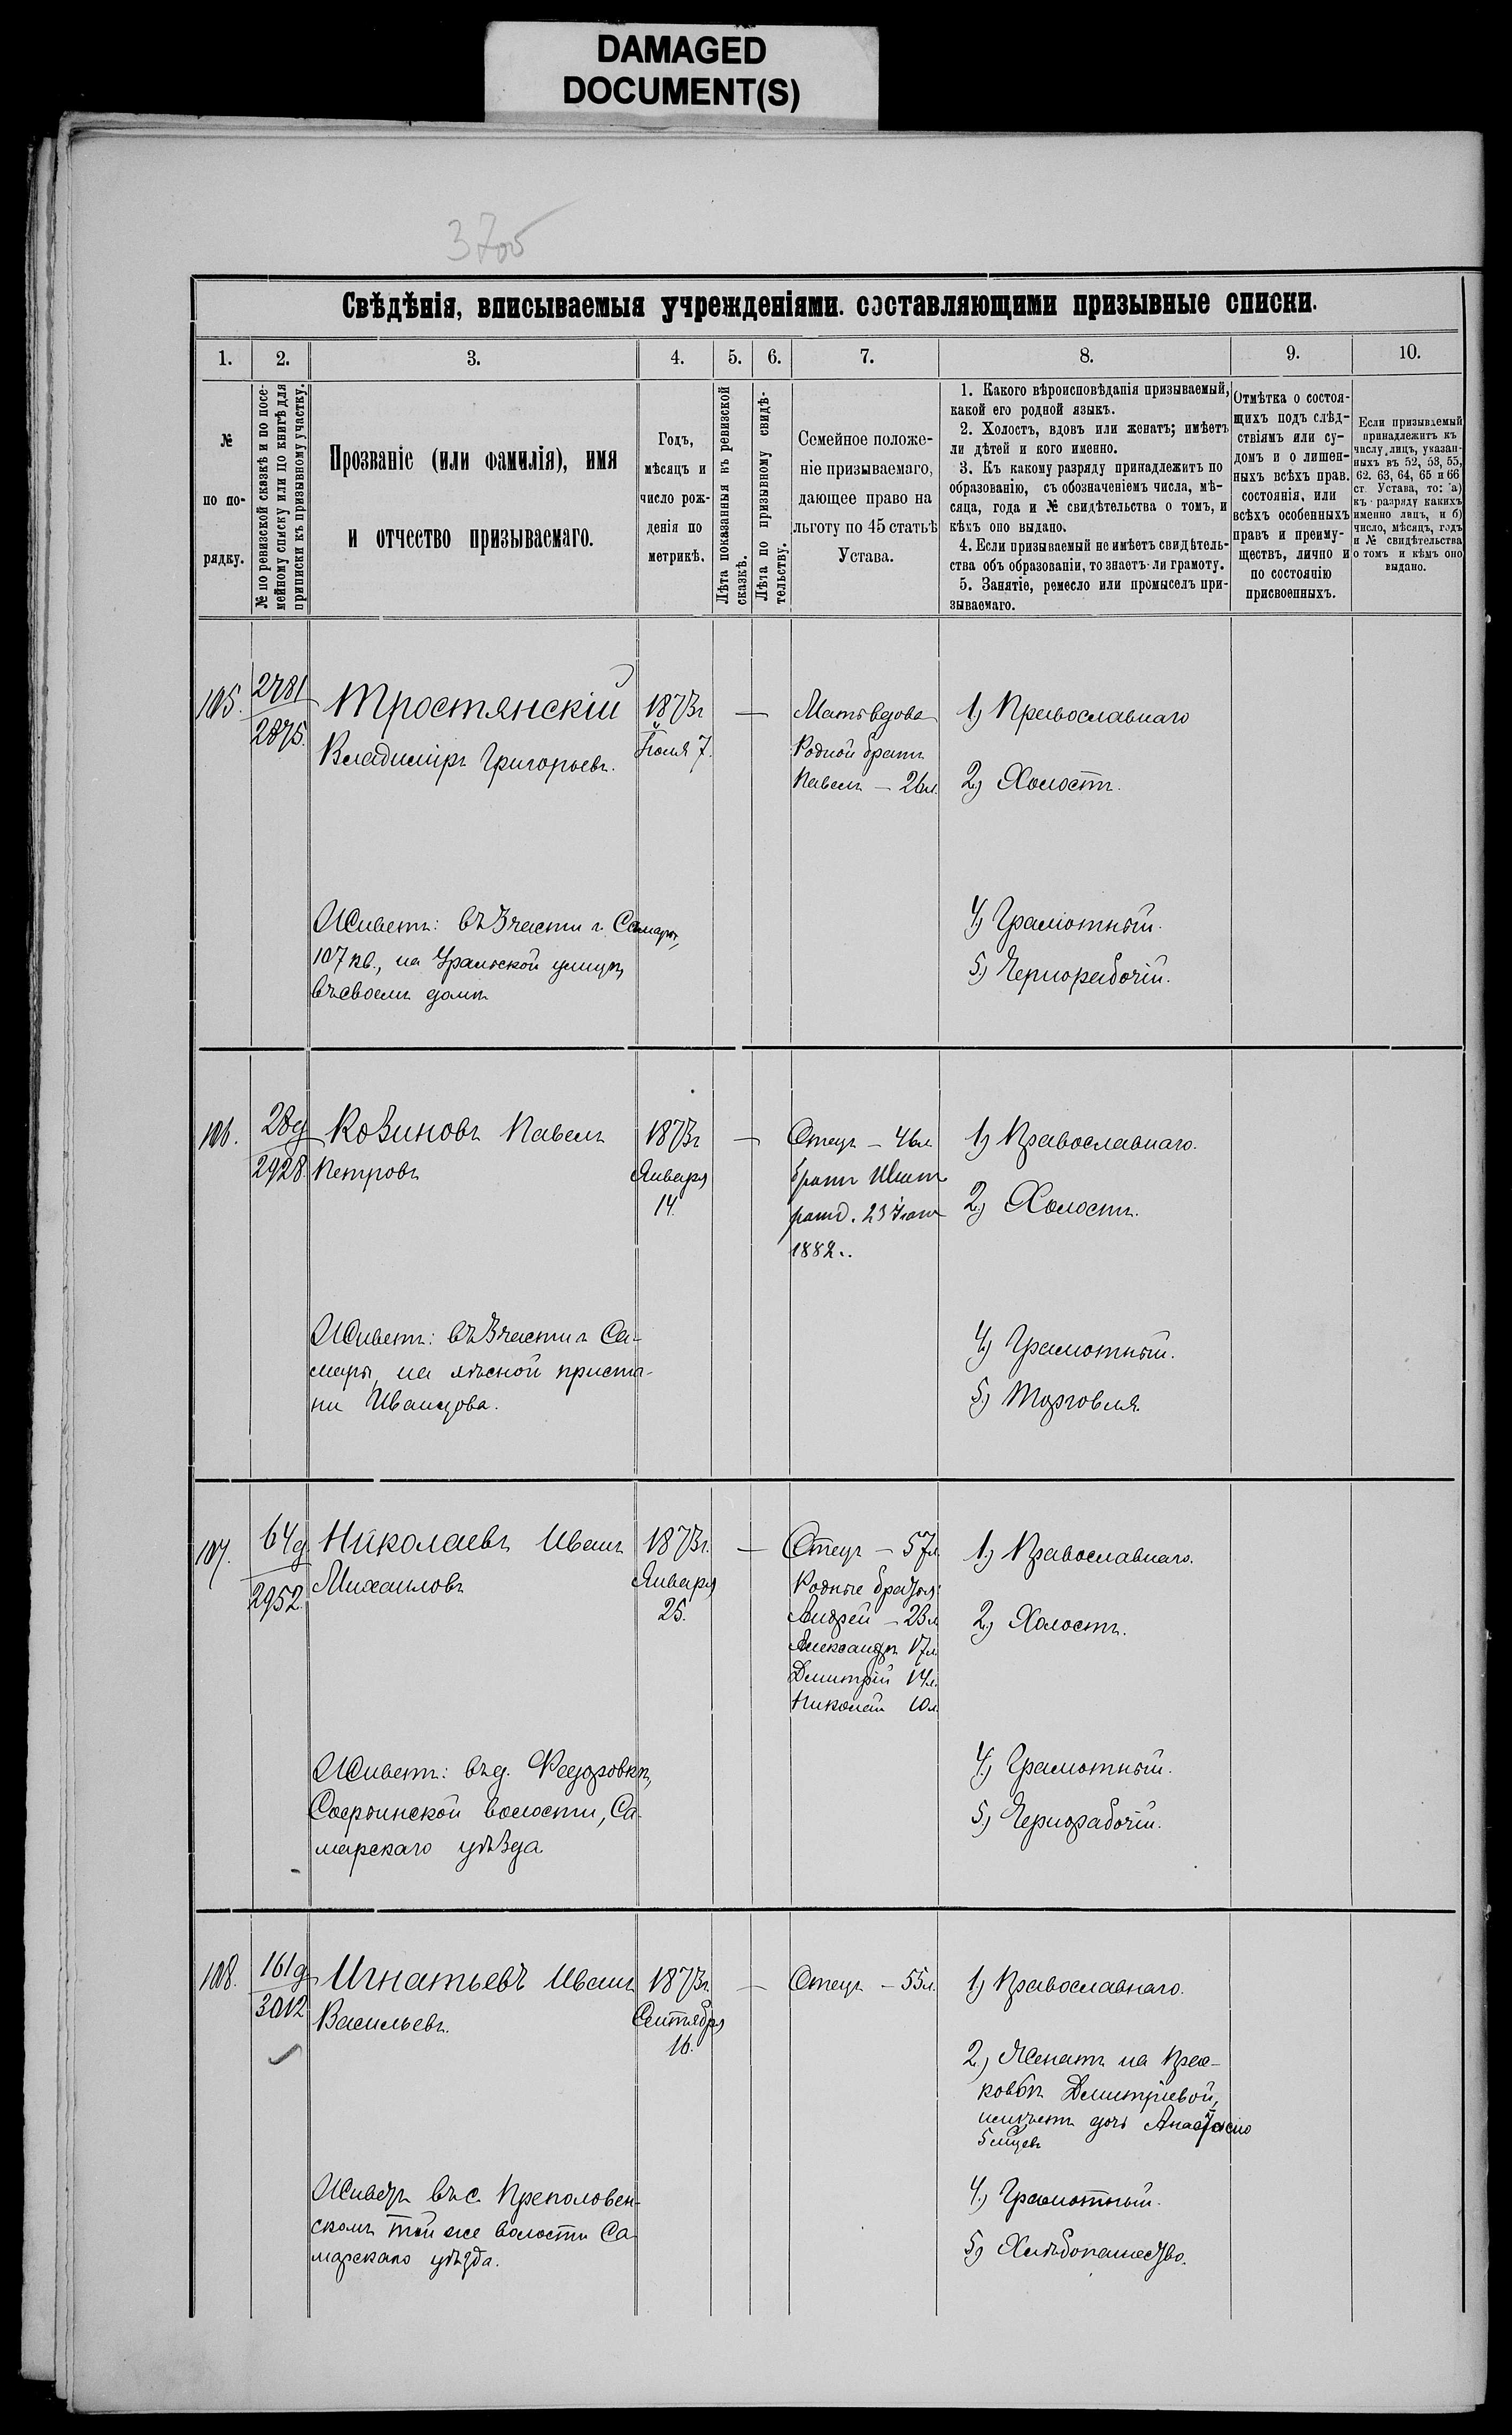 DAMAGED
DOCUMENT(S)
3705
Свѣдѣнія, вписываемыя учрежденіями. составляющими призывные списки.
1. 2. 3. 4. 5. 6. 7. 8. 9. 10.
№
по по-
рядку.
№ по ревизской сказкѣ и по посе-
мейному списку или по книгѣ для
приписки къ призывному участку.
Прозваніе (или фамилія), имя
и отчество призываемаго.
Годъ,
мѣсяцъ и
число рож-
денія по
метрикѣ.
Лѣта показанныя въ ревизской
сказкѣ.
Лѣта по призывному свидѣ-
тельству.
Семейное положе-
ніе призываемаго,
дающее право на
льготу по 45 статьѣ
Устава.
1. Какого вѣроисповѣданія призываемый,
какой его родной языкъ.
2. Холостъ, вдовъ или женатъ; имѣетъ
ли дѣтей и кого именно.
3. Къ какому разряду принадлежитъ по
образованію, съ обозначеніемъ числа, мѣ-
сяца, года и № свидѣтельства о томъ, и
кѣхъ оно выдано.
4. Если призываемый не имѣетъ свидѣтель-
ства объ образованіи, то знаетъ-ли грамоту.
5. Занятіе, ремесло или промыселъ при-
зываемаго.
Отмѣтка о состоя-
щихъ подъ слѣд-
ствіямъ или су-
домъ и о лишен-
ныхъ всѣхъ прав.
состоянія, или
всѣхъ особенныхъ
правъ и преиму-
ществъ, лично и
по состоянію
присвоенныхъ.
Если призываемый
принадлежитъ къ
числу лицъ, указан-
ныхъ въ 52, 53, 55,
62. 63, 64, 65 и 66
ст. Устава, то: а)
къ разряду какихъ
именно лицъ, и б)
число, мѣсяцъ, годъ
и № свидѣтельства
о томъ и кѣмъ оно
выдано.
105.
2781
2875.
Тростянскій
Владиміръ Григорьевъ.
1873г
Іюля 7.
—
Родной братъ
Павелъ — 26л.
1) Православнаго
2) Холостъ.
Живетъ: въ 3 части г. Самары,
107 кв., на Уральской улицѣ,
въ своемъ домѣ
4) Грамотный.
5) Чернорабочій.
106.
28д
2928.
Козиновъ Павелъ
Петровъ
1873г
Января
14.
—
Отецъ — 46л.
братъ
1882г.
1) Православнаго.
2) Холостъ.
Живетъ: въ 3 части г. Са-
мары, на лѣсной приста-
ни Иванцова.
4) Грамотный.
5) Торговля.
107.
64д
2952.
Николаевъ Иванъ
Михаиловъ
1873г.
Января
25.
—
Отецъ — 57л.
Родные братья:
Андрей — 23л
Александръ 17л.
Дмитрій 14л.
Николай 10л.
1) Православнаго.
2) Холостъ.
Живетъ: въ д. Федоровкѣ,
волости, Са-
марскаго уѣзда
4) Грамотный.
5) Чернорабочій.
108.
161д
3012
Игнатьевъ Иванъ
Васильевъ.
1873г.
Сентября
16.
—
Отецъ — 55л.
1) Православнаго.
2) Женатъ на Прас-
ковьѣ Дмитріевой,
имѣетъ дочь Анастасію
5 мѣсяцевъ
Живетъ въ с. Преполовен-
скомъ той же волости Са-
марскаго уѣзда.
4) Грамотный.
5) Хлѣбопашество.